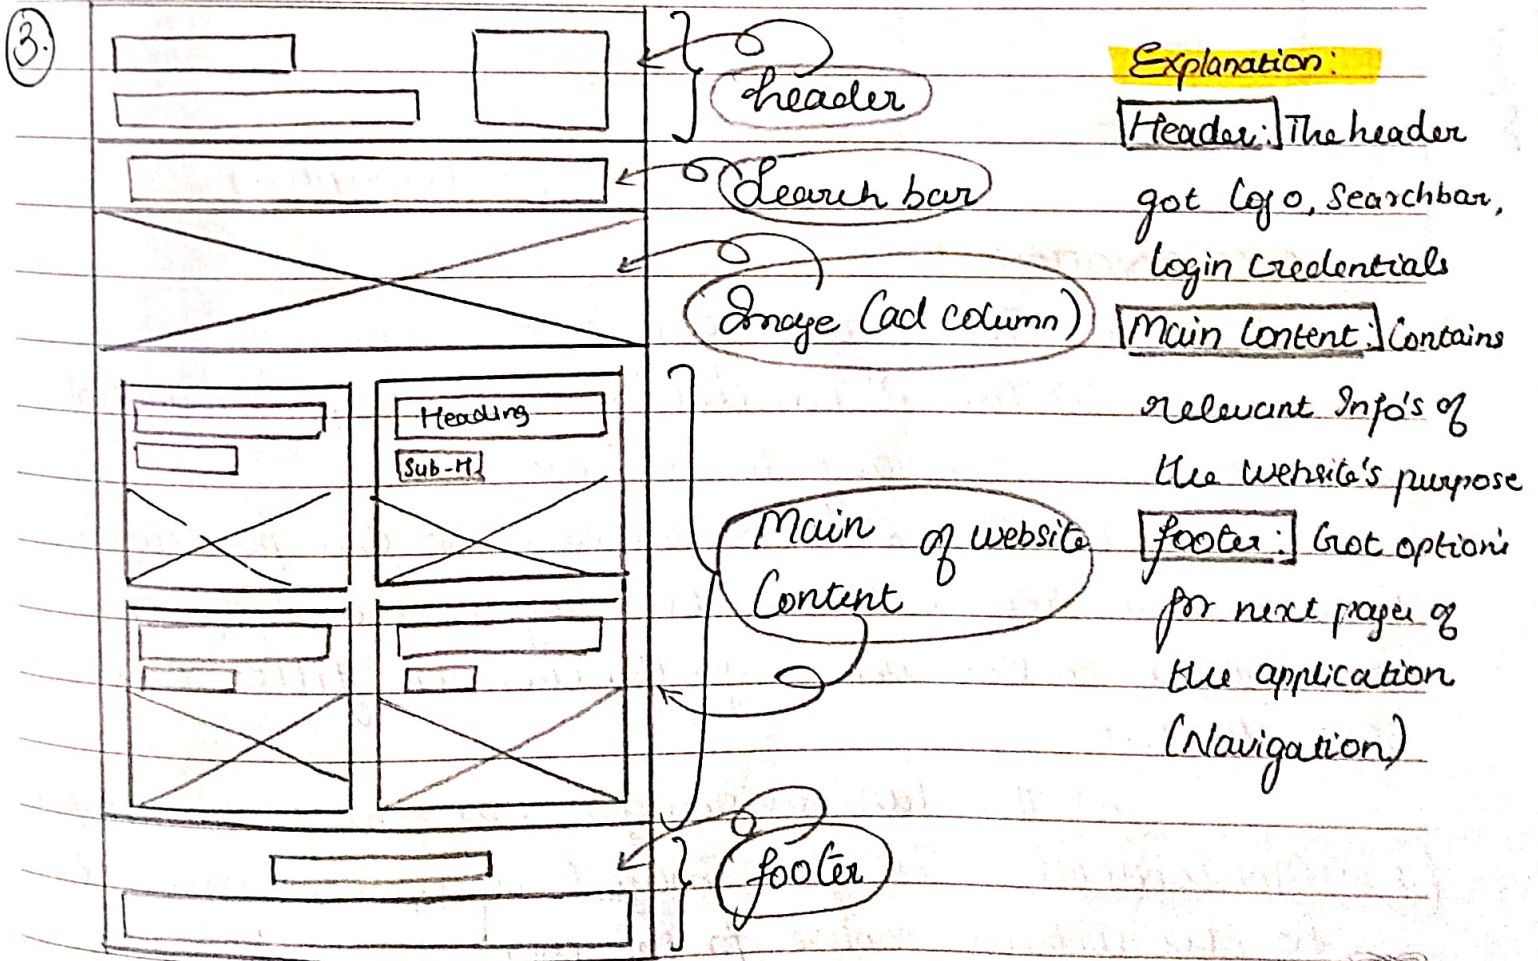 3.
header
Search bar
Image (ad column)
Heading
Sub-H
Main of website
Content
footer
Explanation:
Header: The header
got logo, Searchbar,
login credentials
Main Content: Contains
relevant Info's of
the website's purpose
footer: Got options
for next pages of
the application
(Navigation)